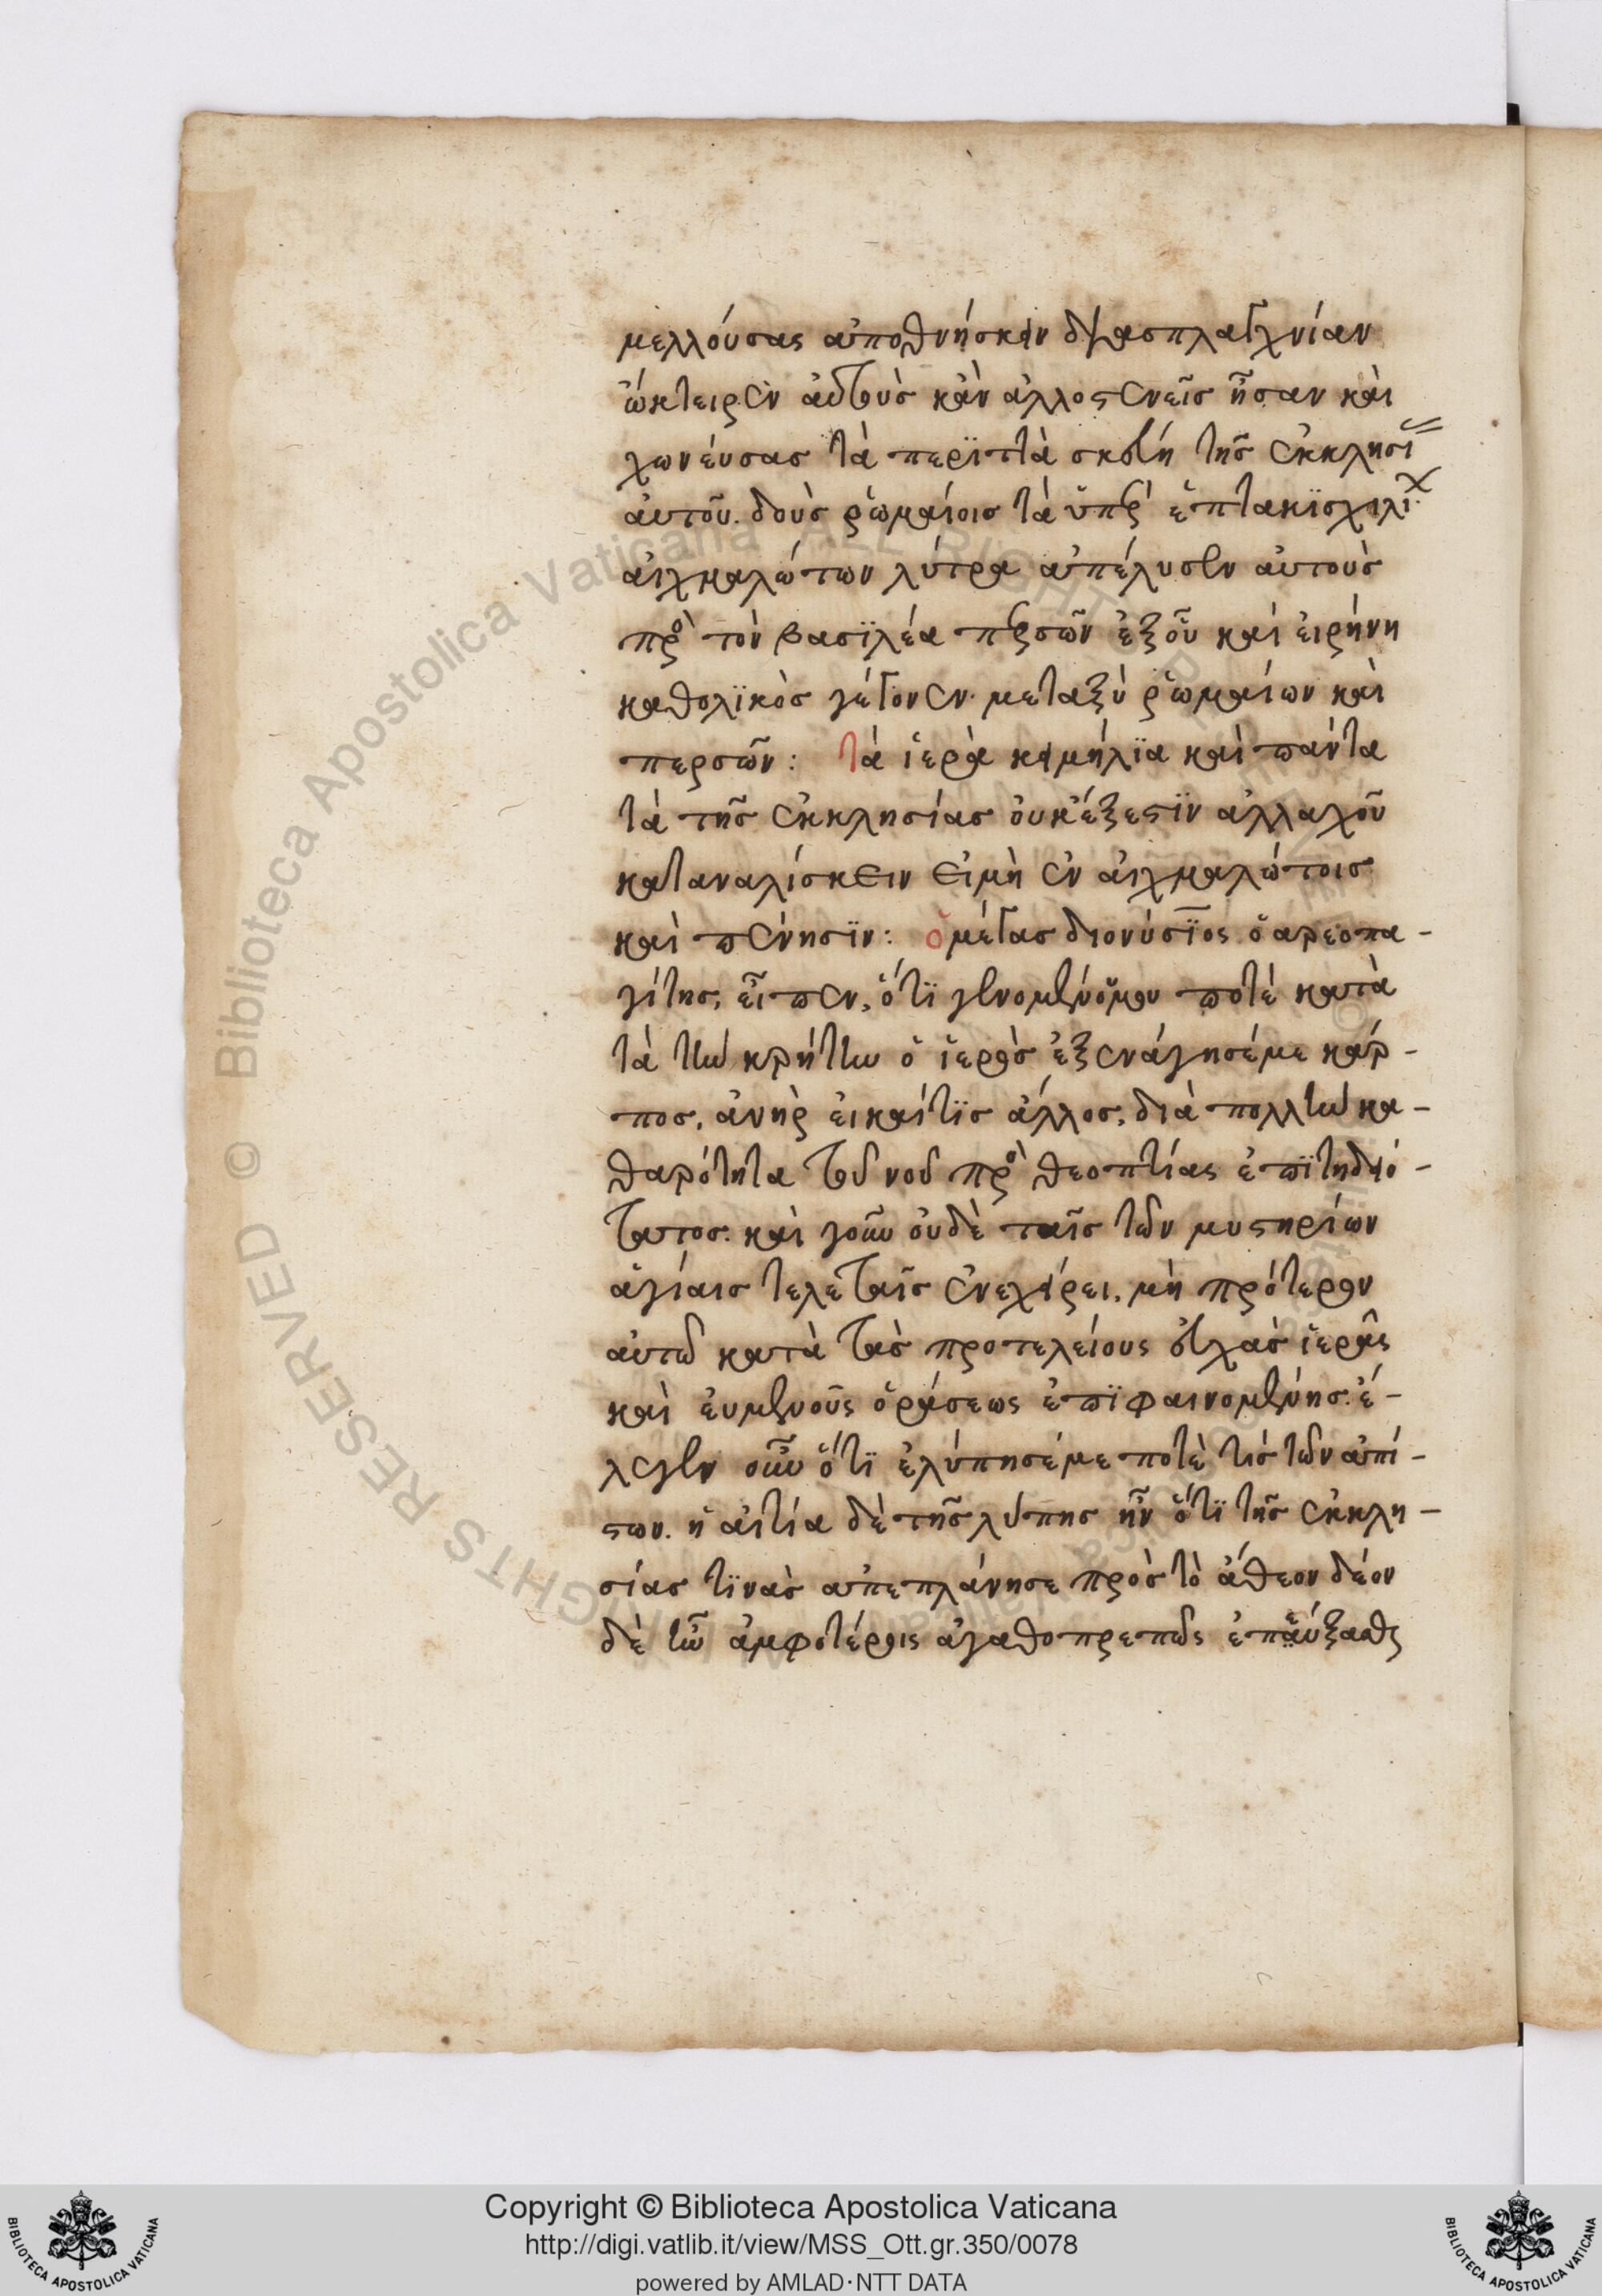 μελλούσας ἀποθνήσκειν δι' εὐσπλαγχνίαν
ὤκτειρεν ἀυτοὺσ κἂν ἀλλοςενεῖσ ἦσαν κὰι
χωνέυσας τὰ περϊττὰ σκεύη τῆσ ἐκκλησί
ἀυτοῦ. δοὺσ ῥωμαίοισ τὰ ὑπὲρ ἑπτακϊσχιλί
ἀιχμαλώτων λύτρα ἀπέλυσεν ἀυτοὺσ
πρὸ τὸν βασϊλέα περσῶν ἐξοῦ καὶ ἐιρήνη
καθολϊκὸσ γέγονεν. μεταξὺ ῥωμαίων καὶ
περσῶν: τὰ ἱερὰ κειμήλϊα καὶ πάντα
τὰ τῆσ ἐκκλησίασ ὀυκέξεστϊν ἀλλαχοῦ
καταναλίσκειν εἰμὴ ἐν ἀιχμαλώτοισ
καὶ πένησϊν: ὁ μέγασ διονύσϊος ὁ αρεοπα-
γίτησ, εἶπεν, ὅτϊ γενομένόυμου ποτὲ κατὰ
τὰ τὴν κρήτην ὁ ἱερὸσ ἐξενάγησέμε κάρ-
πος, ἀνὴρ ἐικαίτϊσ ἄλλοσ, διὰ πολλὴν κα-
θαρότητα τοῦ νοῦ πρὸ θεοπτίας ἐπϊτηδειό-
τατοσ. καὶ γοῦν ὀυδὲ ταῖσ τῶν μυστηρίων
ἁγίαισ τελεταῖσ ἐνεχείρει, μὴ πρότερον
ἀυτῶ κατὰ τὰσ προτελείους ἐυχὰσ ἱερᾶς
καὶ ἐυμενοῦς ὁράσεως ἐπϊφαινομένησ. ἔ-
λεγεν οὖν ὅτϊ ἐλύπησέμε ποτὲ τὶσ τῶν ἀπί-
στων. ἡ ἀιτία δὲ τῆσ λύπησ ἦν ὅτϊ τῆσ ἐκκλη-
σίασ τϊνὰσ ἀπεπλάνησε πρὸσ τὸ ἄθεον δέον
δὲ τῶ ἀμφοτέροις ἀγαθοπρεπῶς ἐπεύξασθαι
Copyright © Biblioteca Apostolica Vaticana
http://digi.vatlib.it/view/MSS_Ott.gr.350/0078
powered by AMLAD·NTT DATA